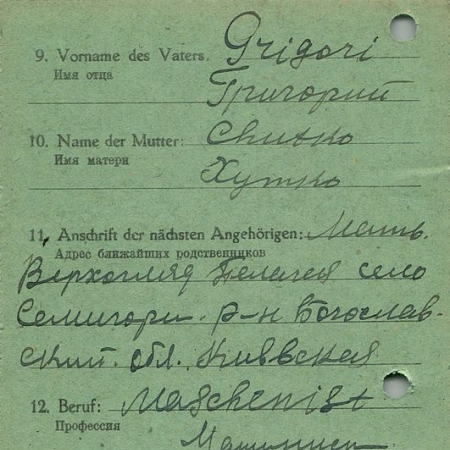 9. Vorname des Vaters: Grigori
Имя отца
Григорий
10. Name der Mutter: Chutko
Имя матери
Хутко
11. Anschrift der nächsten Angehörigen: Мать.
Адрес ближайших родственников
Верхогляд Пелагея село
Семигори. р-н Богослав-
ский. обл. Киевская
12. Beruf: Maschenist
Профессия
Машинист